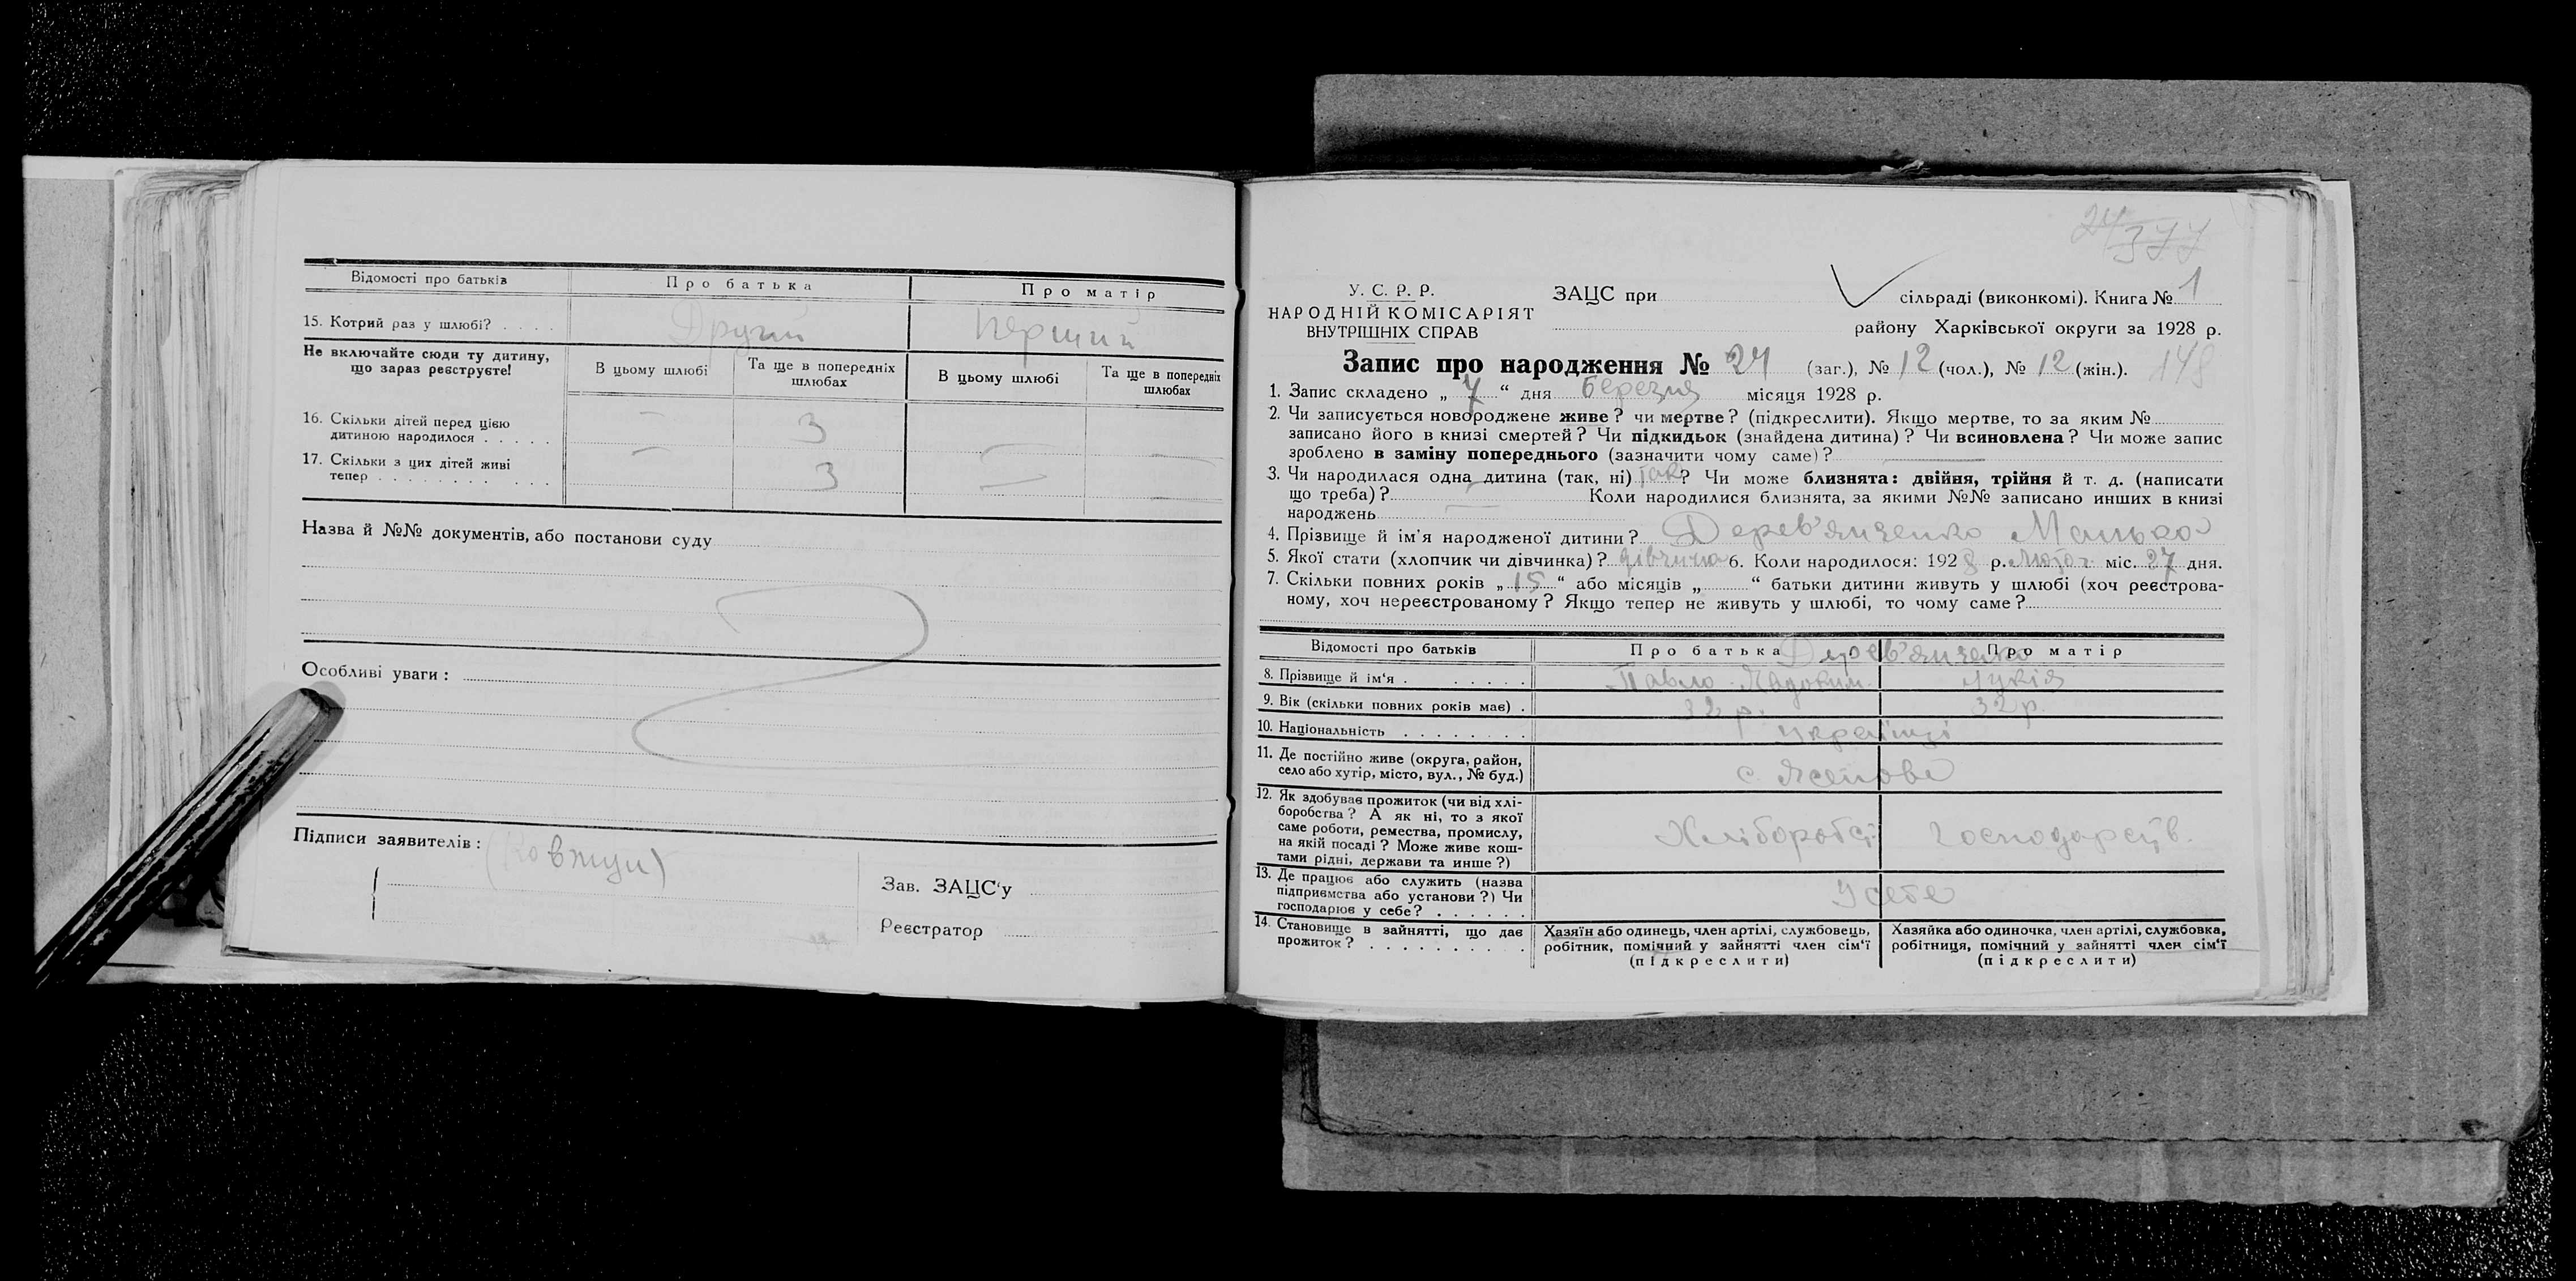 Відомості про батьків
Про батька
Про матір
15. Котрий раз у шлюбі? . . . .
Другий
Перший
Не включайте сюди ту дитину,
що зараз реєструєте!
В цьому шлюбі
Та ще в попередніх
шлюбах
В цьому шлюбі
Та ще в попередніх
шлюбах
16. Скільки дітей перед цією
дитиною народилося . . . . .
— 3 — —
17. Скільки з цих дітей живі
тепер . . . . . . . . . . .
— 3 — —
Назва й №№ документів, або постанови суду
Особливі уваги :
Підписи заявителів :
Зав. ЗАЦС‘у
Реєстратор
24/377
У. С. Р. Р.
НАРОДНІЙ КОМІСАРІЯТ
ВНУТРІШНІХ СПРАВ
ЗАЦС при
сільраді (виконкомі). Книга № 1
району Харківської округи за 1928 р.
Запис про народження № 24 (заг.), № 12 (чол.), № 12 (жін.). 148
1. Запис складено „ 7 “ дня Березня місяця 1928 р.
2. Чи записується новороджене живе? чи мертве? (підкреслити). Якщо мертве, то за яким №
записано його в книзі смертей? Чи підкидьок (знайдена дитина)? Чи всиновлена? Чи може запис
зроблено в заміну попереднього (зазначити чому саме)?
3. Чи народилася одна дитина (так, ні) так? Чи може близнята: двійня, трійня й т. д. (написати
що треба)? — Коли народилися близнята, за якими №№ записано инших в книзі
народжень —
4. Прізвище й ім’я народженої дитини? Дерев’янченко
5. Якої стати (хлопчик чи дівчинка)? дівчина 6. Коли народилося: 1928 р. Лютог міс. 27 дня.
7. Скільки повних років „ 15 “ або місяців „ “ батьки дитини живуть у шлюбі (хоч реєстрова-
ному, хоч нереєстрованому? Якщо тепер не живуть у шлюбі, то чому саме?
Відомості про батьків
Про батька
Про матір
Дерев’янченко
8. Прізвище й ім‘я . . . . . .
Павло
Лукія
9. Вік (скільки повних років має) .
32 р.
32 р.
10. Національність . . . . . . . .
українці
11. Де постійно живе (округа, район,
село або хутір, місто, вул., № буд.)
с. Ясенове
12. Як здобуває прожиток (чи від хлі-
боробства? А як ні, то з якої
саме роботи, ремества, промислу,
на якій посаді? Може живе кош-
тами рідні, держави та инше?)
Хліборобст
Господарств.
13. Де працює або служить (назва
підприємства або установи?) Чи
господарює у себе? . . . . . .
У себе
14. Становище в зайнятті, що дає
прожиток? . . . . . . . . . .
Хазяїн або одинець, член артілі, службовець,
робітник, помічний у зайнятті член сім‘ї
(підкреслити)
Хазяйка або одиночка, член артілі, службовка,
робітниця, помічний у зайнятті член сім‘ї
(підкреслити)